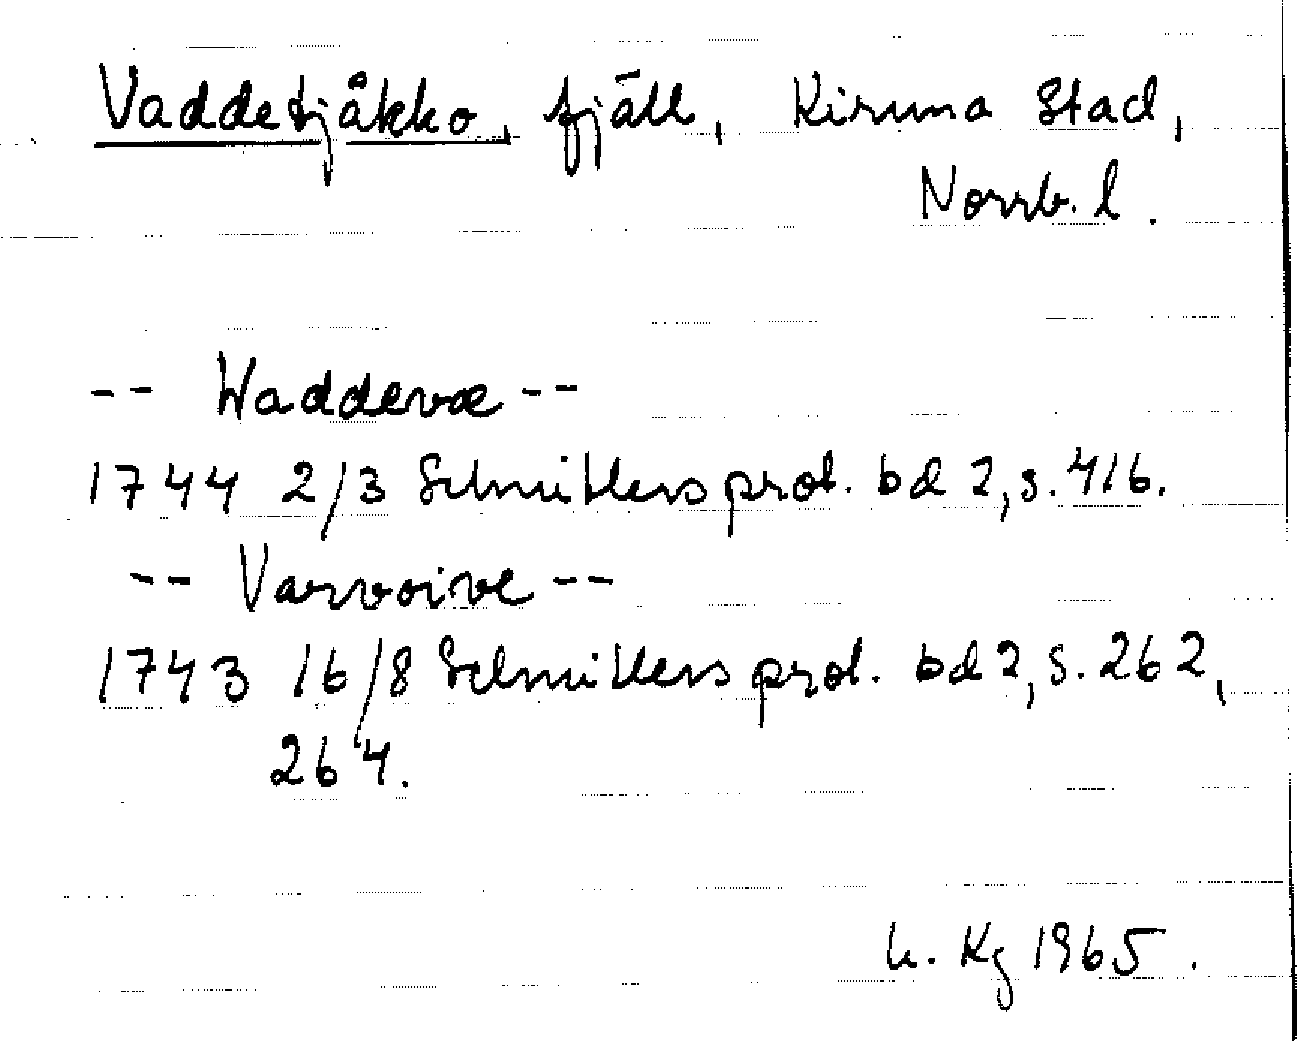 Vaddetjåkko, fjäll, Kiruna Stad,
Norrb. l.
-- Waddevæ --
1744 2/3 Schnitlers prot. bd 2, s. 416.
-- Varvoive --
1743 16/8 Schnitlers prot. bd 2, s. 262,
264.
U. Kg 1965.